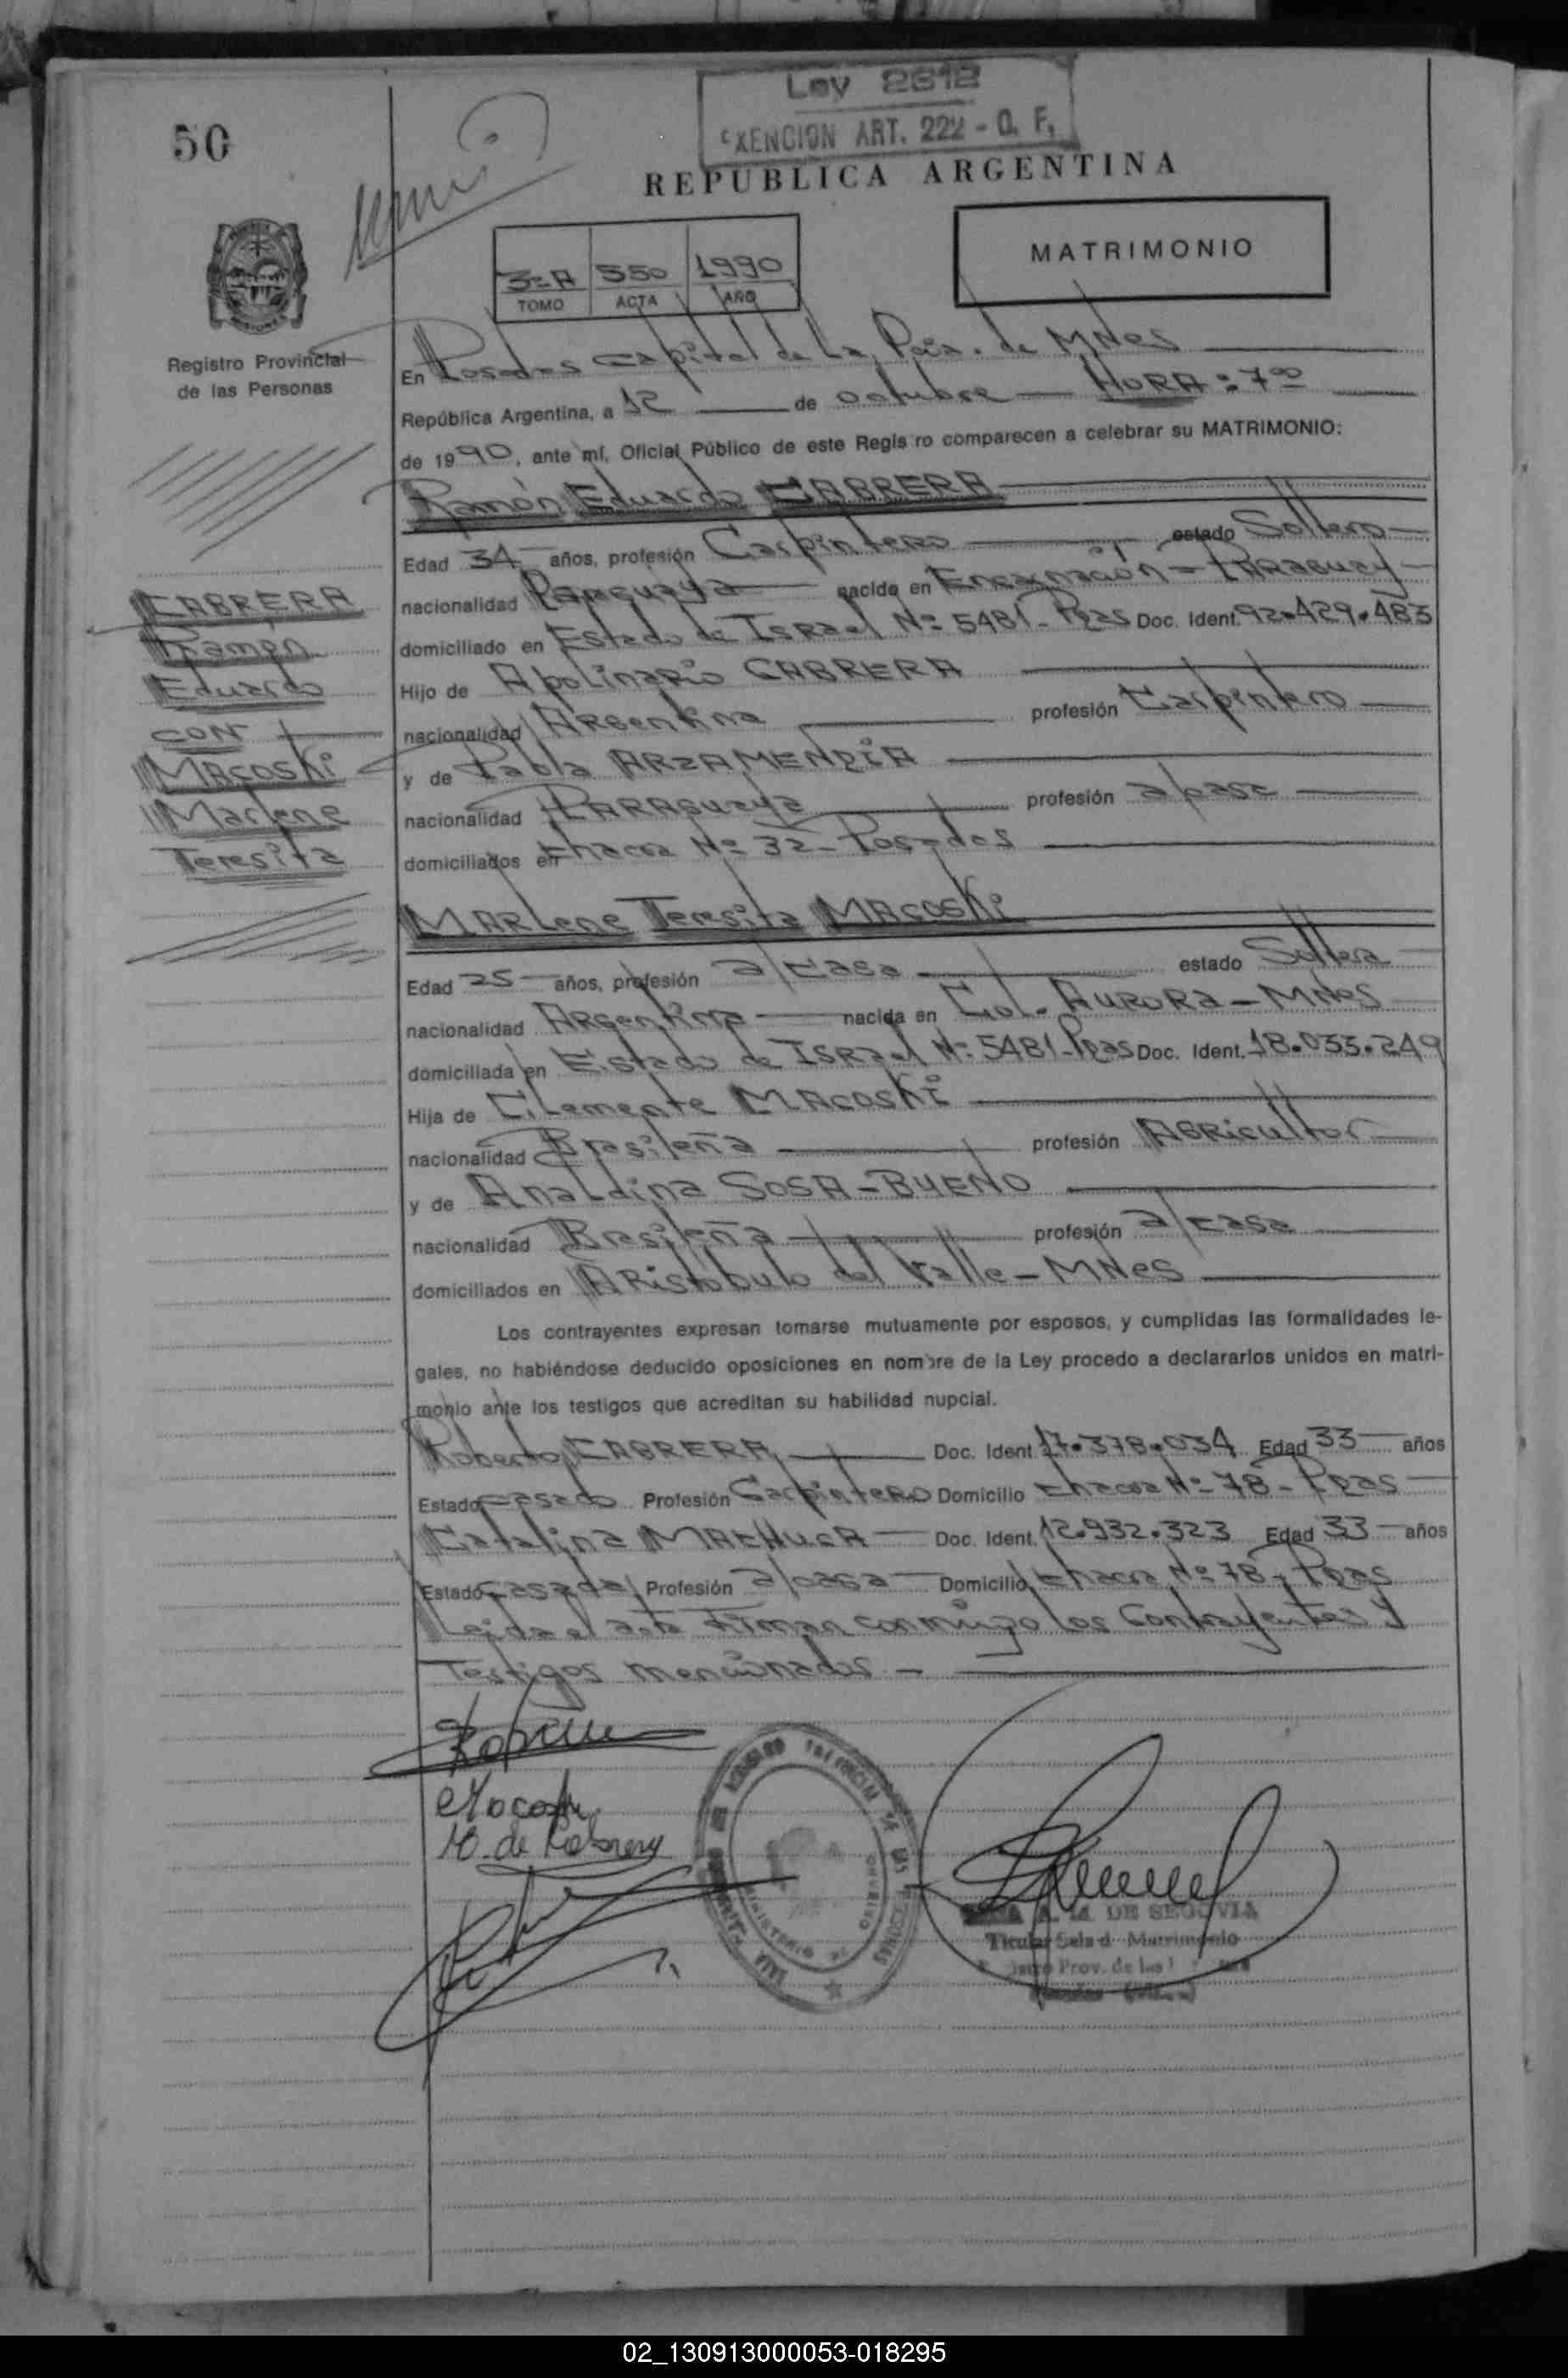 Ley 2612
EXENCION ART. 222 - O. F.
50
REPUBLICA ARGENTINA
MATRIMONIO
3º A 550 1990
TOMO ACTA AÑO
Registro Provincial
de las Personas
En Posadas capital de la Pcia. de MNes
República Argentina, a 12 de octubre HORA: 7 00
de 1990, ante mí, Oficial Público de este Regis ro comparecen a celebrar su MATRIMONIO:
Ramón Eduardo CABRERA
Edad 34 años, profesión Carpintero estado Soltero
nacionalidad Paraguaya nacido en Encarnación - PARAGUAY
domiciliado en Estado de ISRael Nº 5481 - Pdas Doc. Ident. 92.429.483
Hijo de Apolinario CABRERA
nacionalidad ARgentina profesión Carpintero
y de Pabla ARZAMENDIA
nacionalidad PARAGuaya profesión a/casa
domiciliados en chacra Nº 32 - Posadas
CABRERA
Ramón
Eduardo
CON
MACOSKi
Marlene
Teresita
MARLene Teresita MACOSKi
Edad 25 años, profesión a/casa estado Soltera
nacionalidad ARgentina nacida en Col. AURORA - MNes
domiciliada en Estado de ISRael Nº 5481 - Pdas Doc. Ident. 18.033.249
Hija de Clemente MACOSKi
nacionalidad Brasileña profesión AGRicultor
y de AnaLdina SOSA - BUENO
nacionalidad Brasileña profesión a/casa
domiciliados en ARistóbulo del Valle - MNes
Los contrayentes expresan tomarse mutuamente por esposos, y cumplidas las formalidades le-
gales, no habiéndose deducido oposiciones en nombre de la Ley procedo a declararlos unidos en matri-
monio ante los testigos que acreditan su habilidad nupcial.
Roberto CABRERA Doc. Ident. 17.378.034 Edad 33 años
Estado casado Profesión Carpintero Domicilio chacra Nº 78 - Pdas
Catalina MACHUCA Doc. Ident. 12.932.323 Edad 33 años
Estado casada Profesión a/casa Domicilio chacra Nº 78 - Pdas
Leida el acta firman conmigo los Contrayentes y
Testigos mencionados -
M. de Cabrera
A. M. DE SEGOVIA
Titular Sala d Matrimonio
Prov. de las
02_130913000053-018295